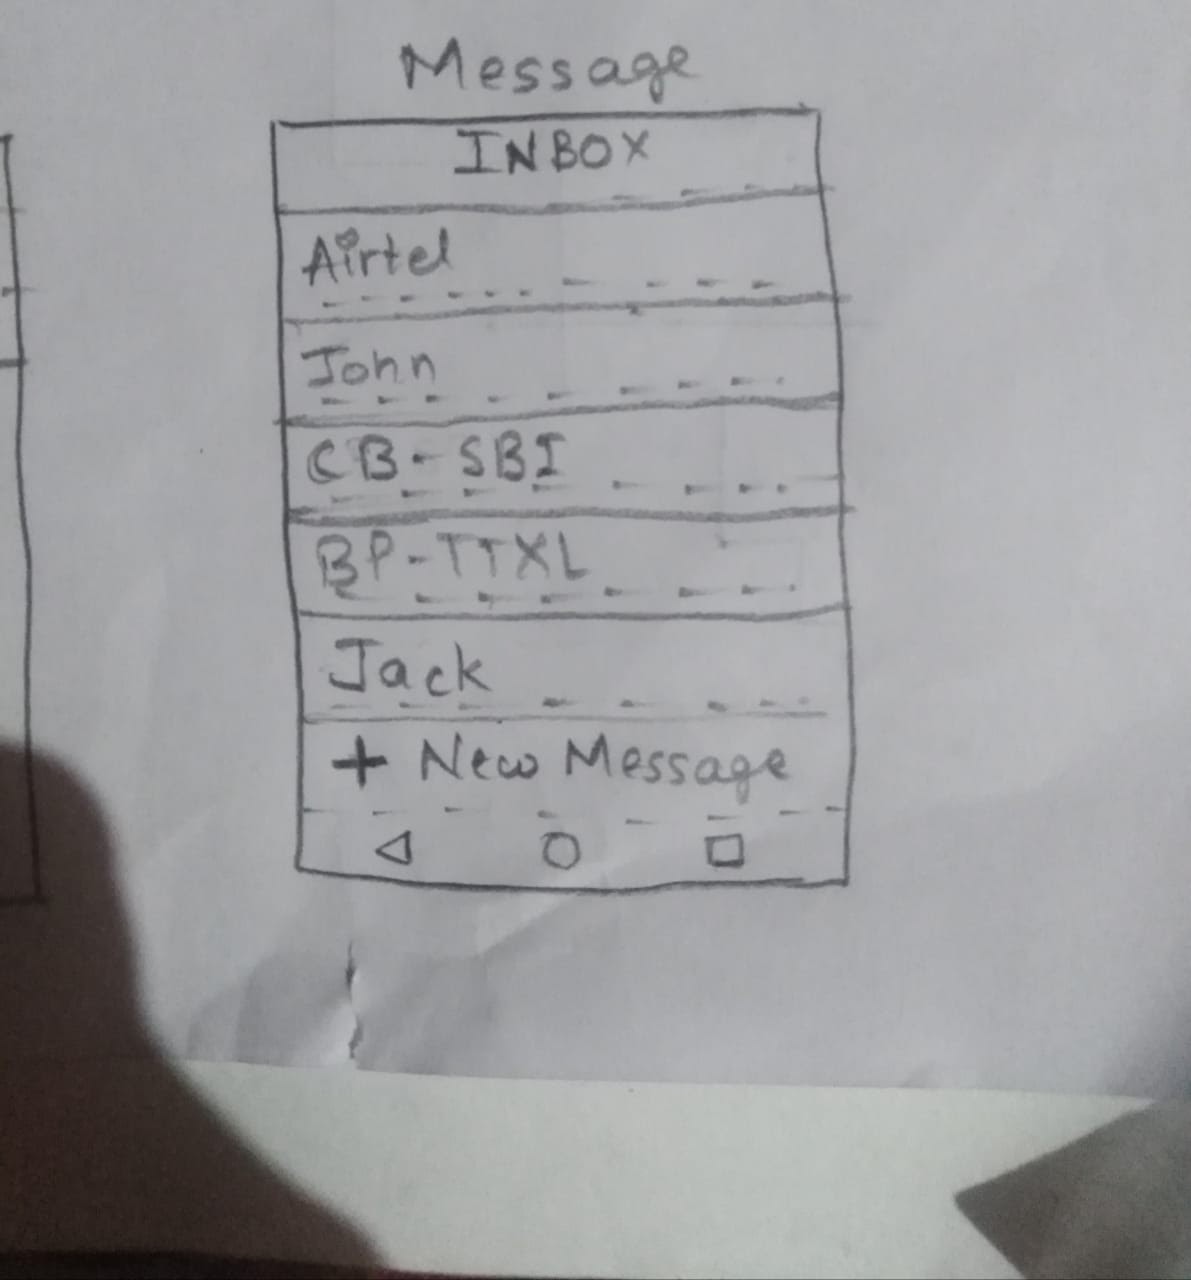 Message
INBOX
Airtel
John
CB-SBI
BP-TTXL
Jack
+ New Message